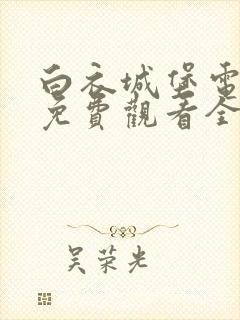 白衣城堡電
免費觀看全
吴荣光